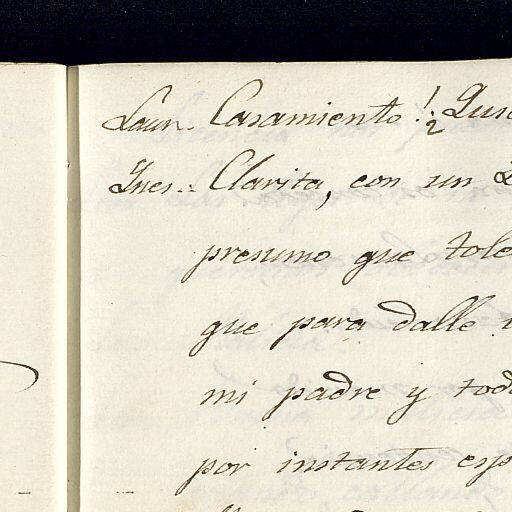 Laur. Casamiento! ¿Quso
Ines.. Clarita, con un
presumo que tole
que para dalle
mi padre y tod
por instantes esp